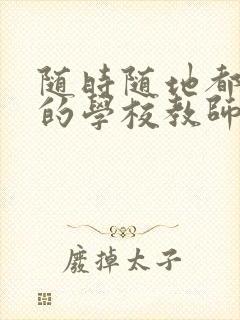 随時随地都
的學校教師
廢掉太子